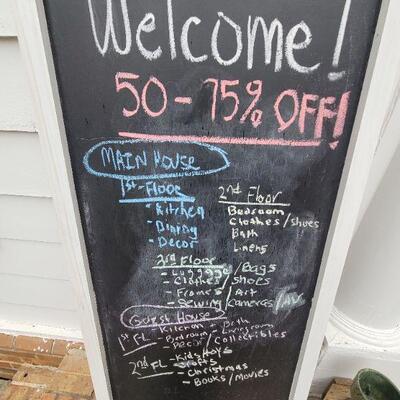 Welcome!
50-75% OFF!
MAIN HOUSE
1st-Floor
- Kitchen
- Dining
- Decor
2nd Floor
Bedroom
Clothes/shoes
Bath
Linens
3rd Floor
- Luggage/Bags
- Clothes/shoes
- Frames/Art
- Sewing/Cameras/AV
Guest House
1st FL - Kitchen - Bath
- Bedroom - Livingroom
- Decor/Collectibles
2nd FL - Kids toys
- Crafts
- Christmas
- Books/Movies